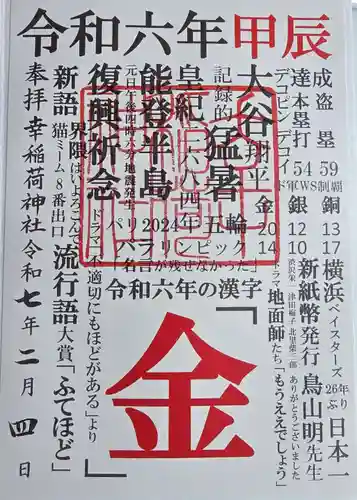 令和六年甲辰
成盗塁59
達本塁打54
デコピン デコイ
ド軍WS制覇
大谷翔平
記録的猛暑
皇紀二六八四年
能登半島
元日午後四時六分地震発生
復興祈念
新語・流行語大賞「ふてほど」
界隈
はいよろこんで
猫ミーム
8番出口
奉拝 幸稲荷神社 令和七年二月四日
パリ2024五輪
パラリンピック
金 銀 銅
20 12 13
14 10 17
名言が残せなかった」
ドラマ「不適切にもほどがある」より
令和六年の漢字
「金」
横浜ベイスターズ26年ぶり日本一
新紙幣発行
渋沢栄一 津田梅子 北里柴三郎
鳥山明先生
ありがとうございました
ドラマ地面師たち「もうええでしょう」